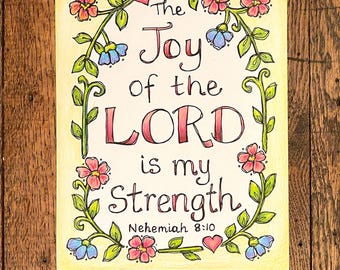 The
Joy
of the
LORD
is my
Strength
Nehemiah 8:10